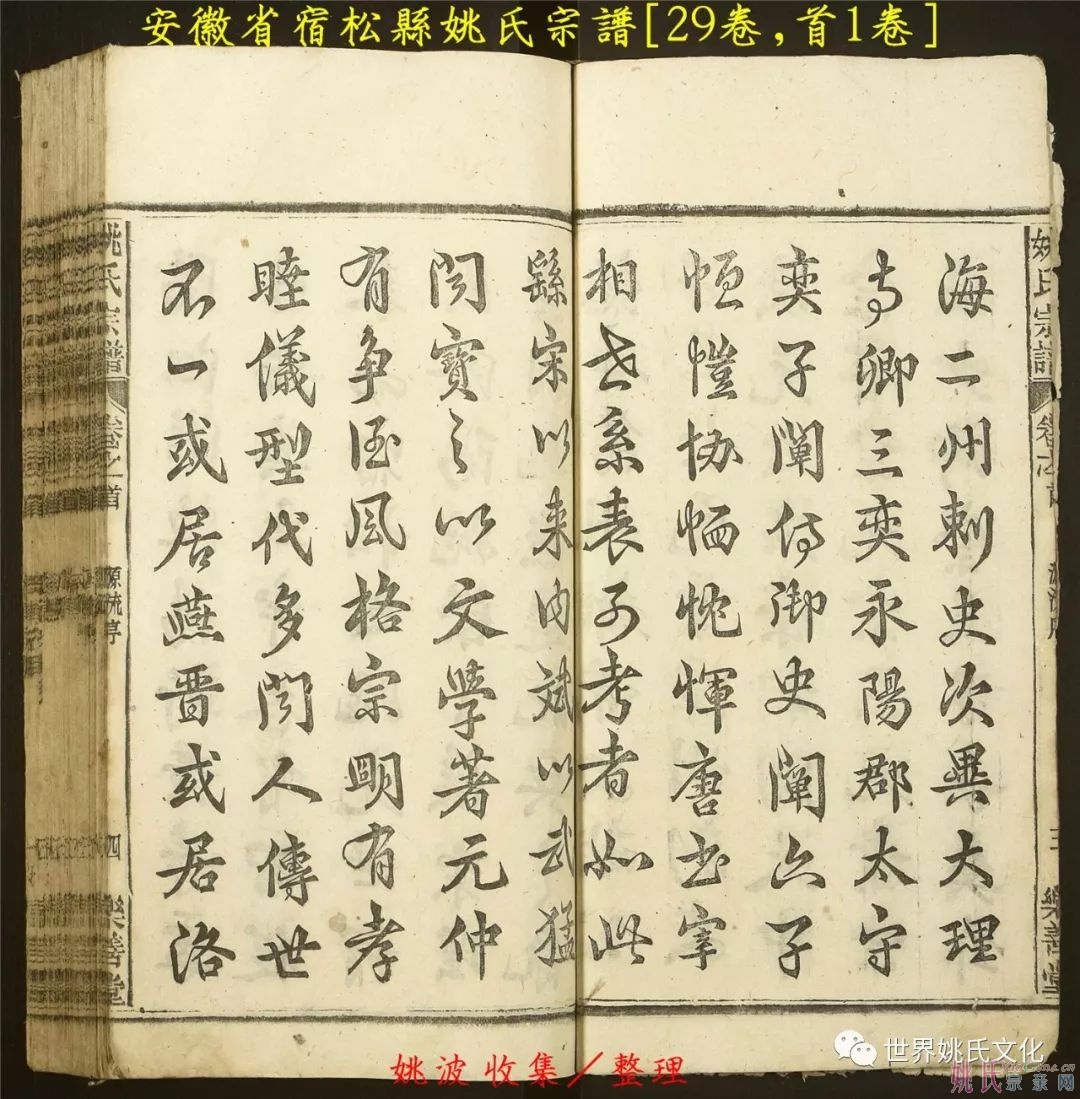 安徽省宿松縣姚氏宗譜[29卷,首1卷]
姚氏宗譜 卷之首 源流序 三 樂善堂
海二州刺史次異大理
寺卿三奕永陽郡太守
奕子闡侍御史闡六子
恒愷协愐忱惲唐书宰
相世系表可考者如此
繇宋以来内斌以武猛
闻寶之以文學著元仲
有争臣風格宗明有孝
睦儀型代多闻人傳世
不一或居燕晋或居洛
姚氏宗譜 卷之首 源流序 四 樂善堂
姚波收集/整理
世界姚氏文化
姚氏宗亲网